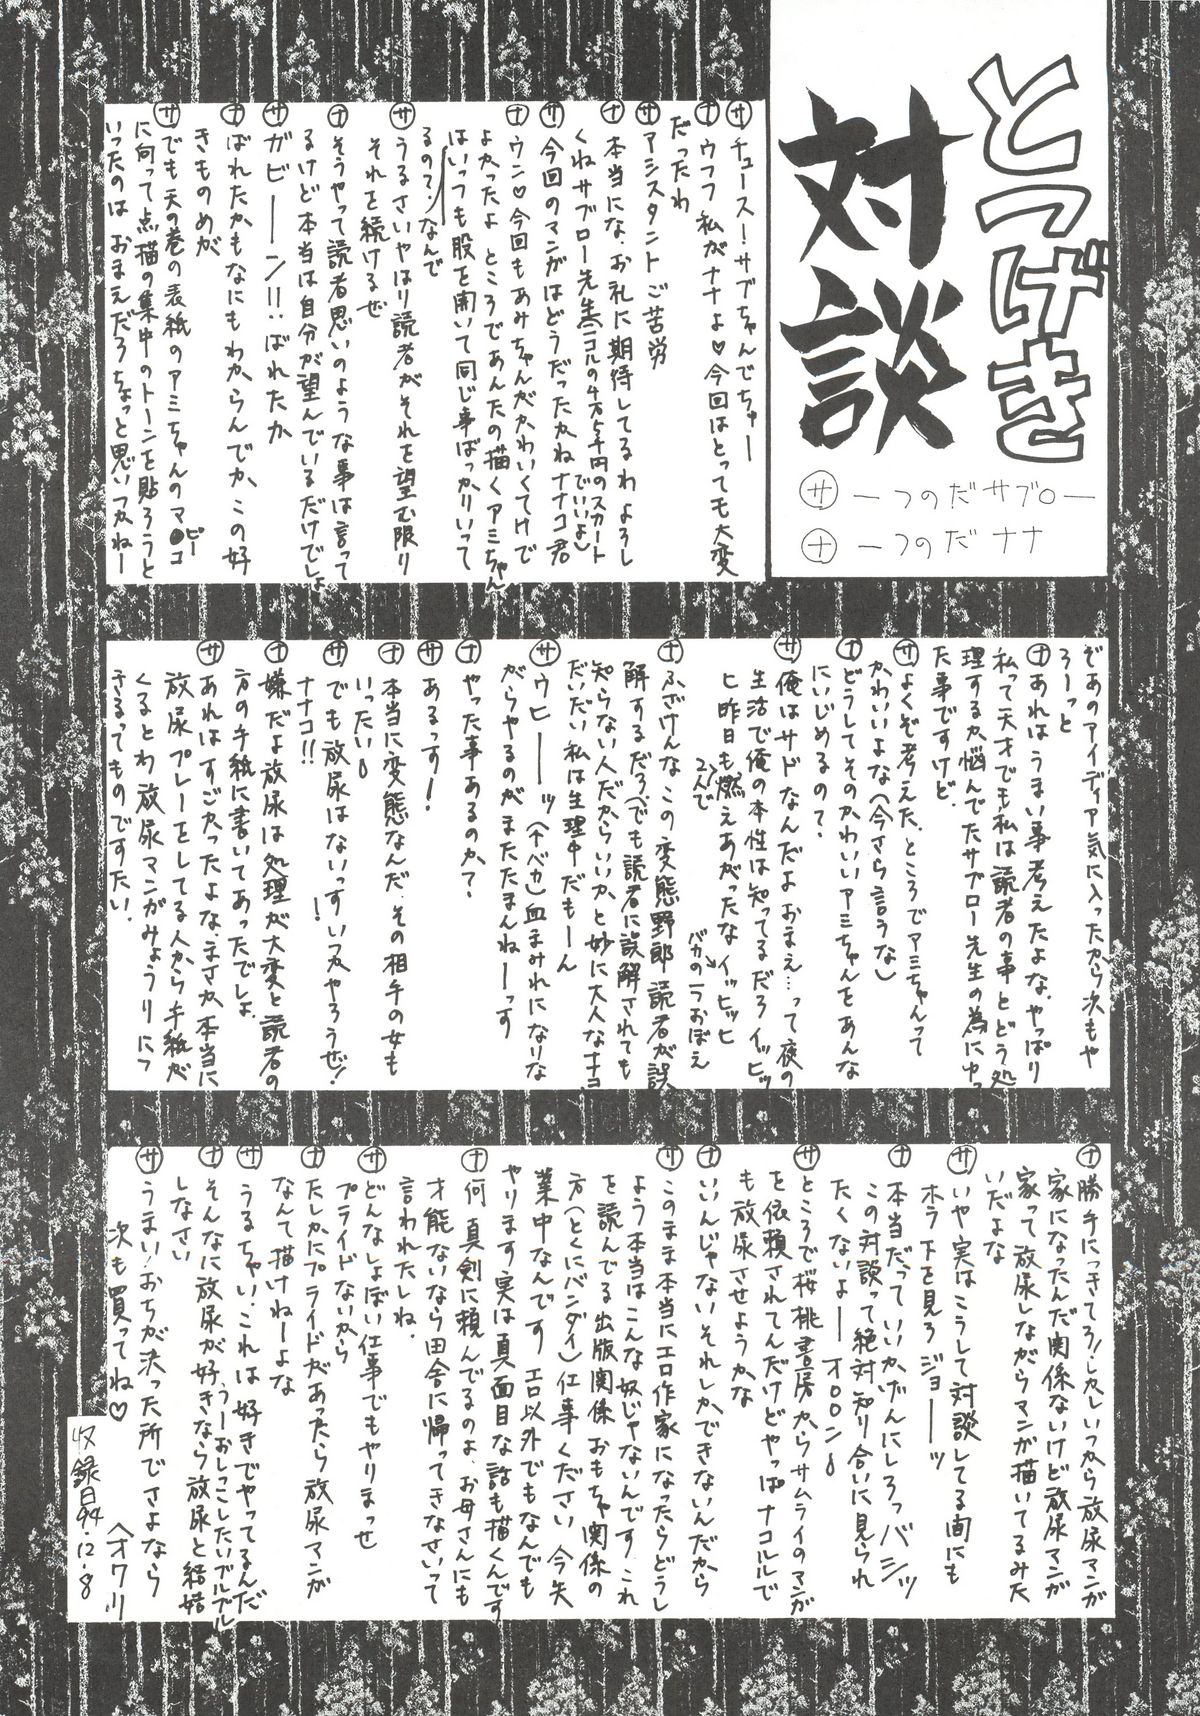 とつげき
対談
サ ーつのだサブローー
ナ ーつのだナナ
サ チュース!サブちゃんでちゅー
ナ ウフフ私がナナよ♡今回はとっても大変
だったわ
サ アシスタントご苦労
ナ 本当にな、お礼に期待してるわよろし
くねサブロー先生(ニコルの4万5千円のスカート
でいいよ)
サ 今回のマンガはどうだったかねナナコ君
ナ ウン♡今回もあみちゃんがかわいくてけで
よかったよところであんたの描くアミちゃん
はいっつも股を開いて同じ事ばっかりいって
るの?なんで
サ うるさいやはり読者がそれを望む限り
それを続けるぜ
ナ そうやって読者思いのような事は言って
るけど本当は自分が望んでいるだけでしょ
サ ガビーーン!!ばれたか
ナ ばれたかもなにもわからんでか この好
きものめが
サ でも天の巻の表紙のアミちゃんのマ●コ
ピー
に向って点描の集中のトーンを貼ろうと
いったのは おまえだろちょっと思いつかねー
ぞあのアイディア気に入ったから次もや
ろーっと
ナ あれはうまい事考えたよな、やっぱり
私って天才でも私は読者の事とどう処
理するか悩んでたサブロー先生の為にやっ
た事ですけど、
サ よくぞ考えた、ところでアミちゃんって
かわいいよな(今さら言うな)
ナ どうしてそのかわいいアミちゃんをあんな
にいじめるの?
サ 俺はサドなんだよ おまえ…って夜の
生活で俺の本性は知ってるだろイッヒッ
ヒ昨日も燃えあがったなイッヒッヒ
2人で
バカの1つおぼえ
ナ ふざけんな この変態野郎 読者が誤
解するだろ(でも読者に誤解されても
知らない人だからいいかと妙に大人なナナコ)
だいだい私は生理中だもーん
サ ウヒーーッ(ナベカ)血まみれになりな
がらやるのがまたたまんねーっす
ナ やった事あるのか?
サ あるっす!
ナ 本当に変態なんだ、その相手の女も
いったい
サ でも放尿はないっすいつかやろうぜ!
ナナコ!!
ナ 嫌だよ放尿は処理が大変と読者の
方の手紙に書いてあったでしょ
サ あれはすごかったよな、まさか本当に
放尿プレーをしてる人から手紙が
くるとわ放尿マンガみょうりにつ
きるってものですたい、
ナ 勝手につきてろ!しかしいつから放尿マンガ
家になったんだ関係ないけど放尿マンガ
家って放尿しながらマンガ描いてるみた
いだよな
サ いや実はこうして対談してる間にも
ホラ下を見ろジョーーッ
ナ 本当だっていいかげんにしろっバシッ
この対談って絶対知り合いに見られ
たくないよーオロロン
サ ところで桜桃書房からサムライのマンガ
を依頼されてんだけどやっぱナコルルで
も放尿させようかな
ナ いいんじゃないそれしかできないんだから
サ このまま本当にエロ作家になったらどうし
よう本当はこんな奴じゃないんです、これ
を読んでる出版関係おもちゃ関係の
方(とくにバンダイ)仕事ください今失
業中なんです エロ以外でもなんでも
やります実は真面目な話も描くんです
ナ 何真剣に頼んでるのよ、お母さんにも
才能ないなら田舎に帰ってきなさいって
言われたしね、
サ どんなしょぼい仕事でもやりまっせ
プライドないから
ナ たしかにプライドがあったら放尿マンガ
なんて描けねーよな
サ うるちゃい、これは好きでやってるんだ
うーおしっこしたいブルブル
ナ そんなに放尿が好きなら放尿と結婚
しなさい
サ うまい!おちが決った所でさよなら
次も買ってね♡
(オワリ)
収録日94.12.8